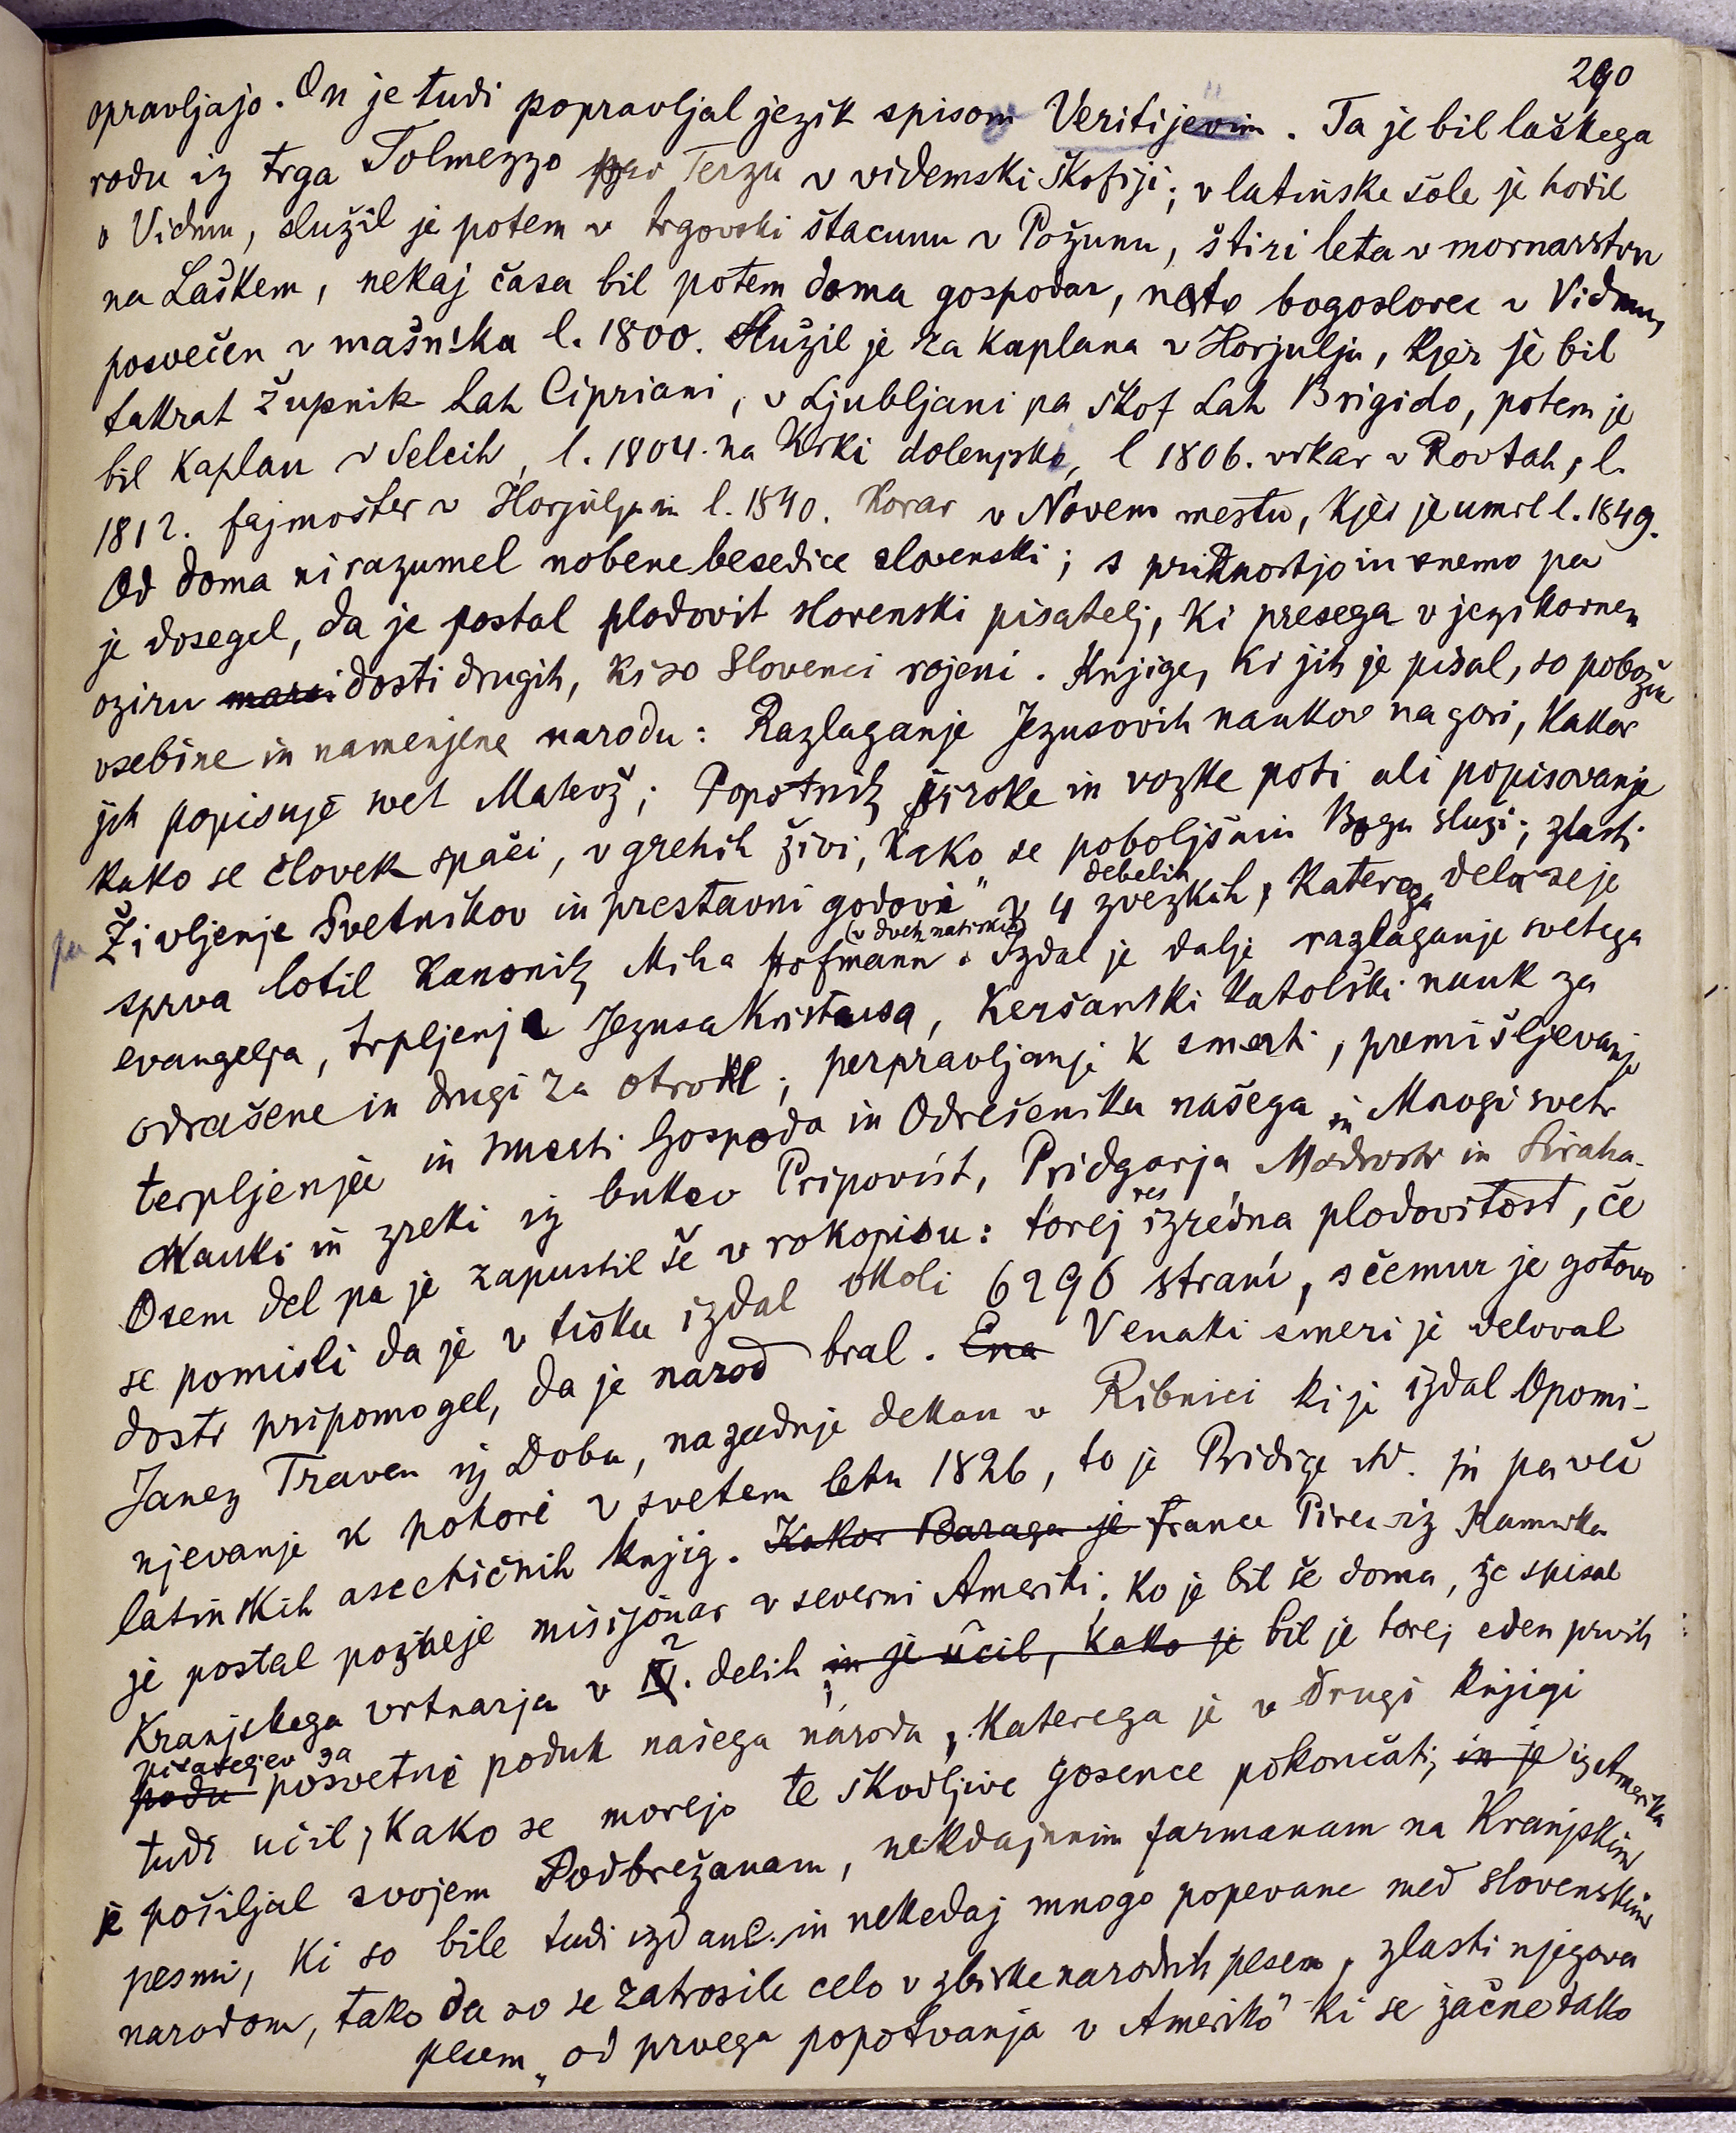 290
opravljajo. On je tudi popravljal jezik spisom Veritijevim. Ta je bil laškega
rodu iz trga Tolmezzo Terzu v videmski škofiji; v latinske šole je hodil
v Vidmu, služil je potem v trgovski štacunu v Požunu, štiri leta v mornarstvu
na Laškem, nekaj časa bil potem doma gospodar, nato bogoslovec v Vidmu,
posvečen v mašnika l. 1800. Služil je za kaplana v Horjulju, kjer je bil
takrat župnik Lah Cipriani, v Ljubljani pa škof Lah Brigido, potem je
bil kaplan v Selcih, l. 1804. na Krki dolenjski, l 1806. vikar v Rovtah, l.
1812. fajmošter v Horjulju in l. 1840. korar v Novem mestu, kjer je umrl l. 1849.
Od doma ni razumel nobene besedice slovenski; s pridnostjo in vnemo pa
je dosegel, da je postal plodovit slovenski pisatelj, ki presega v jezikovnem
oziru dosti drugih, ki so Slovenci rojeni. Knjige, ki jih je pisal, so pobožne
vsebine in namenjene narodu: Razlaganje Jezusovih naukov na gori, kakor
jih popisuje svet Matevž; Popotnik široke in vozke poti ali popisovanje
kako se človek spači, v grehih živi, kako se poboljša in Bogu služi; zlasti
pa Življenje Svetnikov in prestavni godovi" v 4 debelih zvezkih, katerega dela se je
sprva lotil kanonik Miha Hofmann (v dveh natiskih). Izdal je dalje razlaganje svetega
evangelja, trpljenje Jezusa Kristusa, Keršanski katolški nauk za
odrašene in drugi za otroke; perpravljanje k smerti, premišljevanje
terpljenja in smerti Gospoda in Odrešenika našega in Mnogi sveti
Nauki in zreki iz bukev Pripovist, Pridgarja, Modrosti in Siraha.
Osem del pa je zapustil še v rokopisu: torej res izredna plodovitost, če
se pomisli da je v tisku izdal okoli 6296 strani, s čemur je gotovo
dosti pripomogel, da je narod bral. Ena V enaki smeri je deloval
Janez Traven iz Doba, nazadnje dekan v Ribnici ki je izdal Opomi-
njevanje k pokori v svetem letu 1826, to je Pridige itd. in pa več
latinskih ascetičnih knjig. Kakor Baraga je France Pirec iz Kamnika
je postal pozneje misijonar v severni Ameriki; ko je bil še doma, je spisal
Kranjskega vrtnarja v 2 delih; in je učil, kako je bil je torej eden prvih
podu pisateljev za posvetni poduk našega naroda, katerega je v drugi knjigi
tudi učil, kako se morejo te škodljive gosence pokončati; in je iz Amerika
je pošiljal svojem Podbrežanam, nekdajnim farmanam na Kranjskim
pesmi, ki so bile tudi izdane. in nekedaj mnogo popevane med slovenskim
narodom, tako da so se zatrosile celo v zbirke narodnih pesem, zlasti njegova
pesem „od prvega popotvanja v Ameriko" ki se začne tako